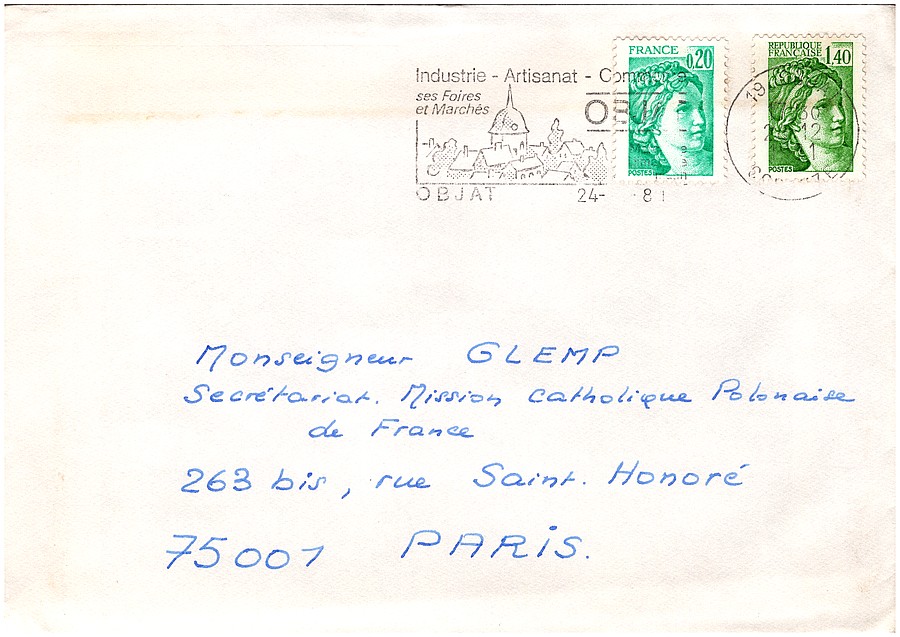 Industrie - Artisanat - Commerce
ses Foires
et Marchés
OBJAT
24- -81
FRANCE
0,20
POSTES
REPUBLIQUE
FRANÇAISE
1,40
POSTES
19
12
Monseigneur GLEMP
Secrétariat. Mission catholique Polonaise
de France
263 bis, rue Saint. Honoré
75001 PARIS.